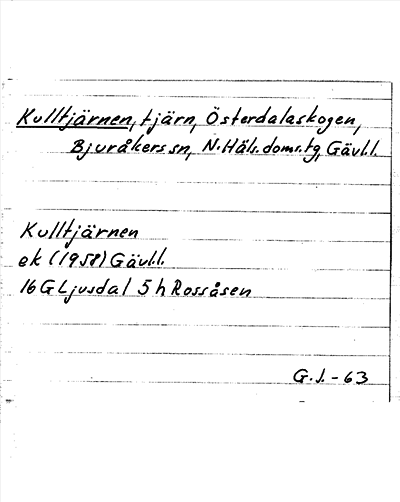 Kulltjärnen, tjärn, Österdalaskogen,
Bjuråkers sn, N. Häls. doms. tg, Gävl.l.
Kulltjärnen
ek (1958) Gävl.l.
16G Ljusdal 5h Rossåsen
G.J. - 63